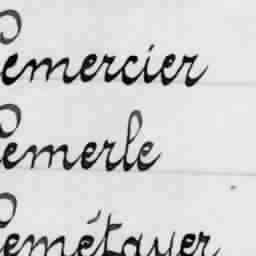 Lemercier
Lemerle
Lemétayer